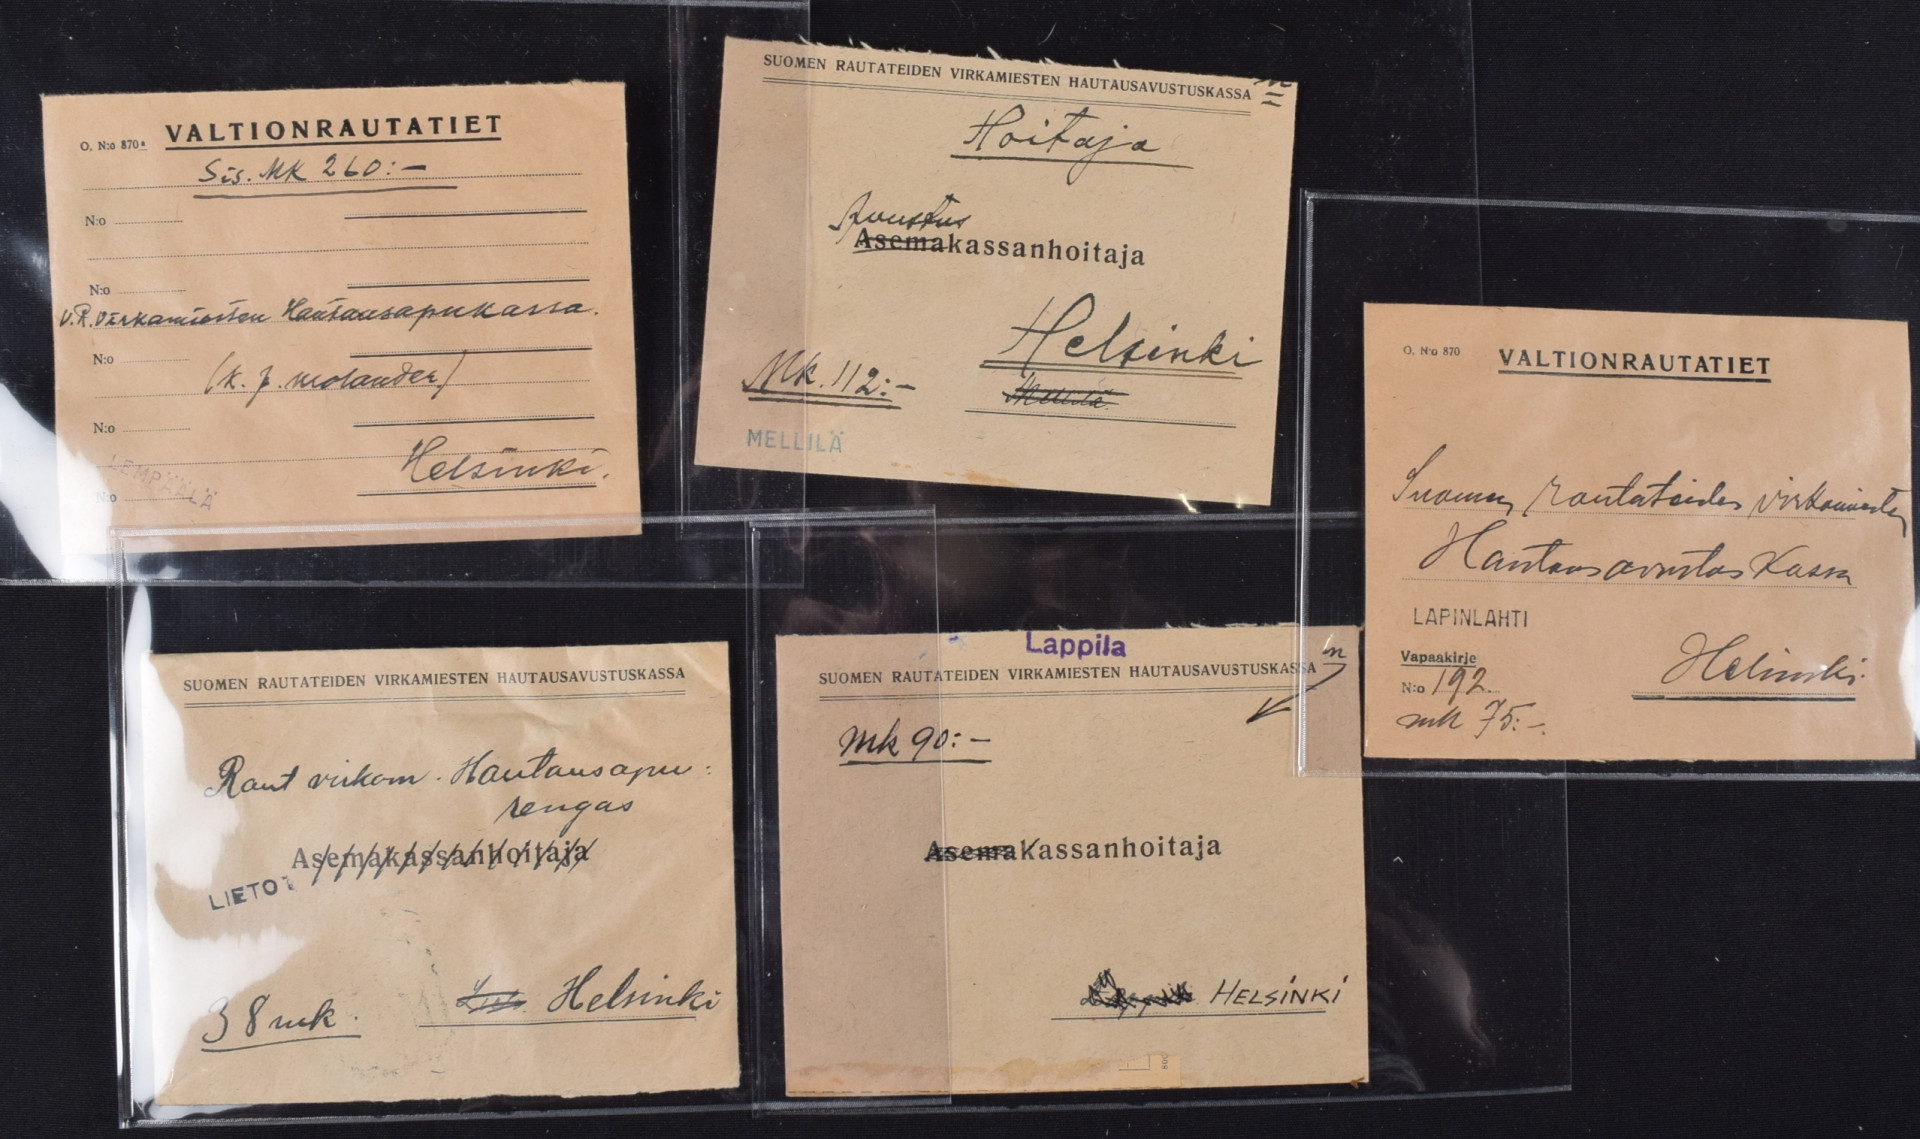 O. N:o 870a VALTIONRAUTATIET
Sis. MK 260:-
N:o
N:o
V.R. Virkamiesten Hautausapukassa.
N:o
(K. J. Molander)
N:o
Helsinki.
LEMPÄÄLÄ
N:o
SUOMEN RAUTATEIDEN VIRKAMIESTEN HAUTAUSAVUSTUSKASSA
Hoitaja
Avustus
Asemakassanhoitaja
Helsinki
Mk. 112:-
Mellilä
MELLILÄ
O. N:o 870 VALTIONRAUTATIET
Suomen rautateiden virkamiesten
Hautausavustus Kassa
LAPINLAHTI
Vapaakirje
Helsinki.
N:o 192.
mk 75:-.
SUOMEN RAUTATEIDEN VIRKAMIESTEN HAUTAUSAVUSTUSKASSA
Raut virkam. Hautausapu:
rengas
Asemakassanhoitaja
LIETO
Helsinki
38 mk.
Lappila
SUOMEN RAUTATEIDEN VIRKAMIESTEN HAUTAUSAVUSTUSKASSA
Mk 90:-
AsemaKassanhoitaja
HELSINKI